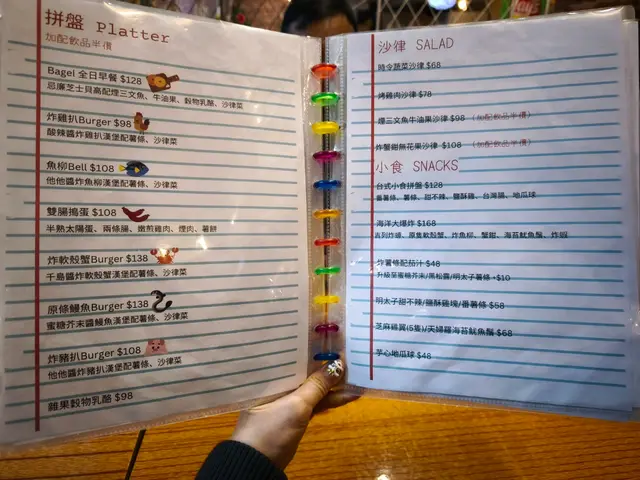 拼盤 Platter
加配飲品半價
Bagel 全日早餐 $128
忌廉芝士貝高配煙三文魚、牛油果、穀物乳酪、沙律菜
炸雞扒Burger $98
酸辣醬炸雞扒漢堡配薯條、沙律菜
魚柳Bell $108
他他醬炸魚柳漢堡配薯條、沙律菜
雙腸搗蛋 $108
半熟太陽蛋、兩條腸、嫩煎雞肉、煙肉、薯餅
炸軟殼蟹Burger $138
千島醬炸軟殼蟹漢堡配薯條、沙律菜
原條鰻魚Burger $138
蜜糖芥末醬鰻魚漢堡配薯條、沙律菜
炸豬扒Burger $108
他他醬炸豬扒漢堡配薯條、沙律菜
雜果穀物乳酪 $98
沙律 SALAD
時令蔬菜沙律 $68
烤雞肉沙律 $78
煙三文魚牛油果沙律 $98 (加配飲品半價)
炸蟹鉗無花果沙律 $108 (加配飲品半價)
小食 SNACKS
台式小食拼盤 $128
番薯條、薯條、甜不辣、鹽酥雞、台灣腸、地瓜球
海洋大爆炸 $168
吉列炸蠔、原隻軟殼蟹、炸魚柳、蟹鉗、海苔魷魚鬚、炸蝦
炸薯條配茄汁 $48
升級至蜜糖芥末/黑松露/明太子薯條 +$10
明太子甜不辣/鹽酥雞塊/番薯條 $58
芝麻雞翼(5隻)/天婦羅海苔魷魚鬚 $68
芋心地瓜球 $48